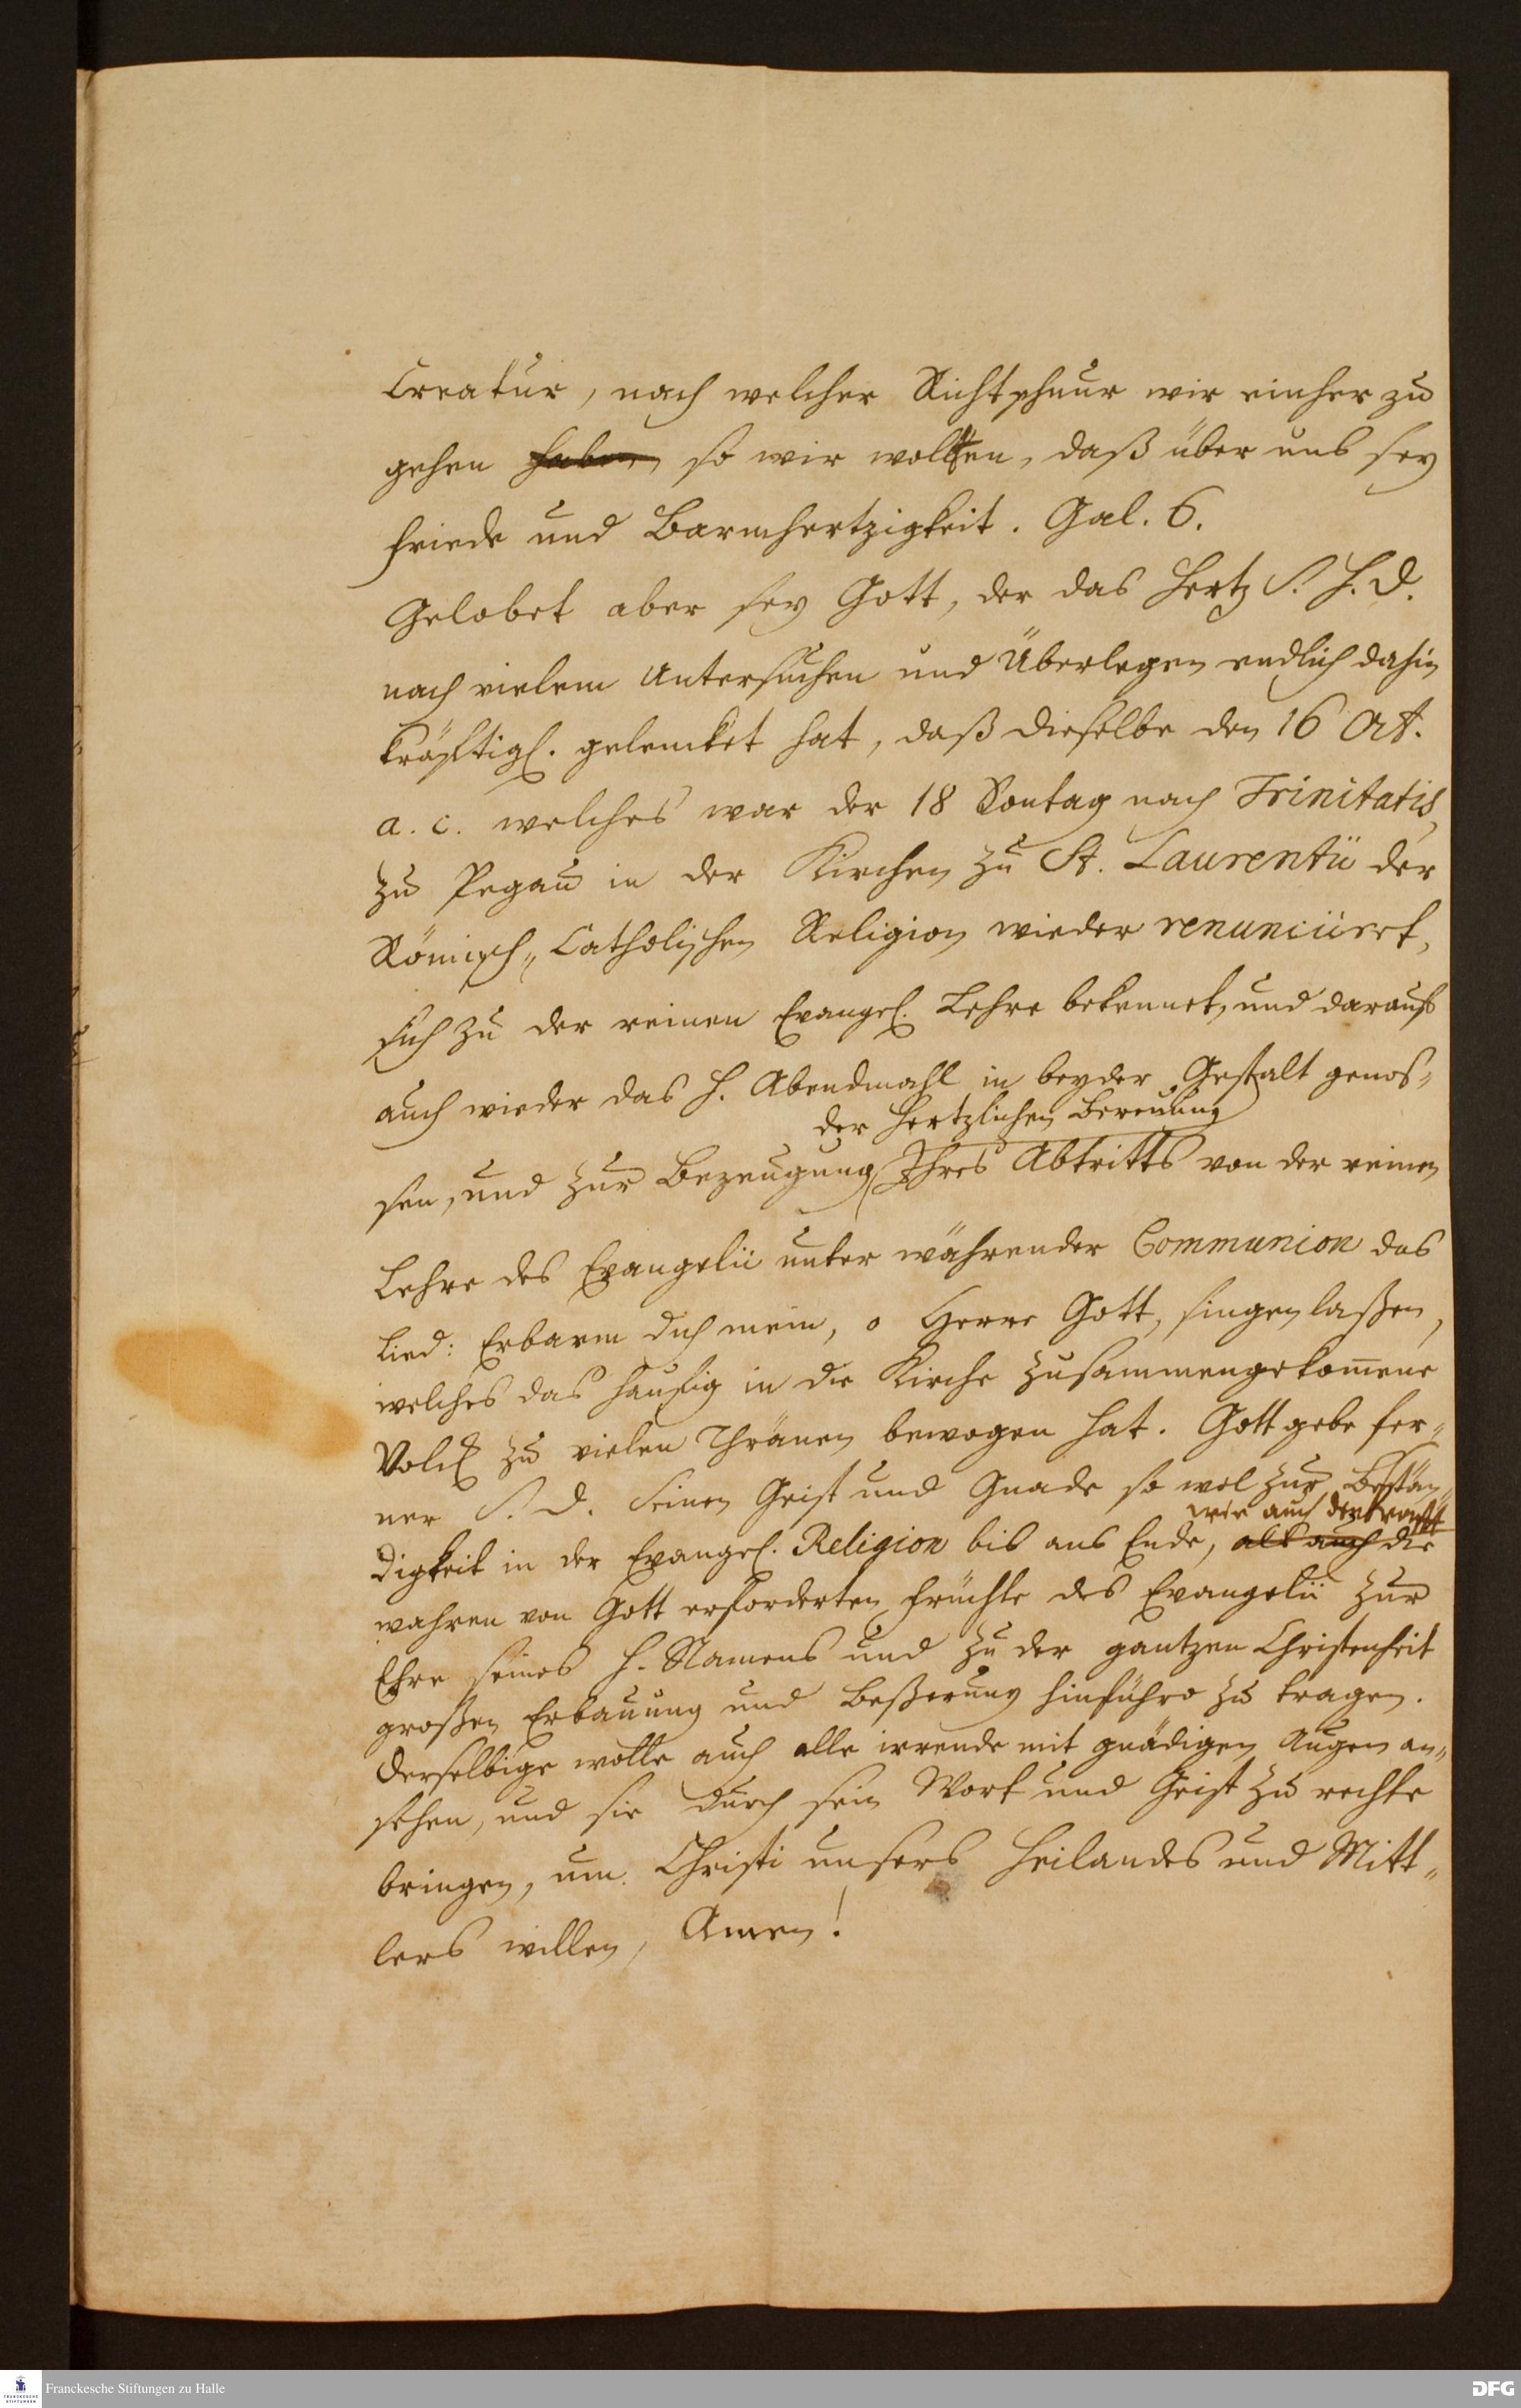 Creatur, nach welcher Richtschnur wir einher zu
gehen haben, so wir wollen, daß über uns sey
Friede und Barmhertzigkeit. Gal. 6.
Gelobet aber sey Gott, der das Hertz S. H. D.
nach vielem Untersuchen und Überlegen endlich dahin
kräfftigl. gelencket hat, daß dieselbe den 16 Oct.
a. c. welches war der 18 Sontag nach Trinitatis,
zu Pegau in der Kirchen zu St. Laurentii der
Römisch-Catholischen Religion wieder renunciiret,
sich zu der reinen Evangel. Lehre bekennet, und darauf
auch wieder das H. Abendmahl in beyder Gestalt genos-
der hertzlichen Bereuung
sen, und zur Bezeugung Ihres Abtritts von der reinen
Lehre des Evangelii unter währender Communion das
Lied: Erbarm dich mein, o Herre Gott, singen laßen,
welches das häufig in die Kirche zusammengekomene
Volck zu vielen Thränen bewogen hat. Gott gebe fer-
ner S. D. Seinen Geist und Gnade so wol zur Bestän-
wie auch die
digkeit in der Evangel. Religion bis ans Ende, als auch die
wahren von Gott erforderten Früchte des Evangelii zur
Ehre seines H. Namens und zu der gantzen Christenheit
großen Erbauung und Beßerung hinführo zu tragen.
Derselbige wolle auch alle irrende mit gnädigen Augen an-
sehen, und sie durch sein Wort und Geist zu rechte
bringen, um Christi unsers Heilandes und Mitt-
lers willen, Amen!
Franckesche Stiftungen zu Halle
DFG